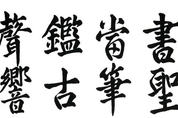 書聖
當筆
鑑古
聲響